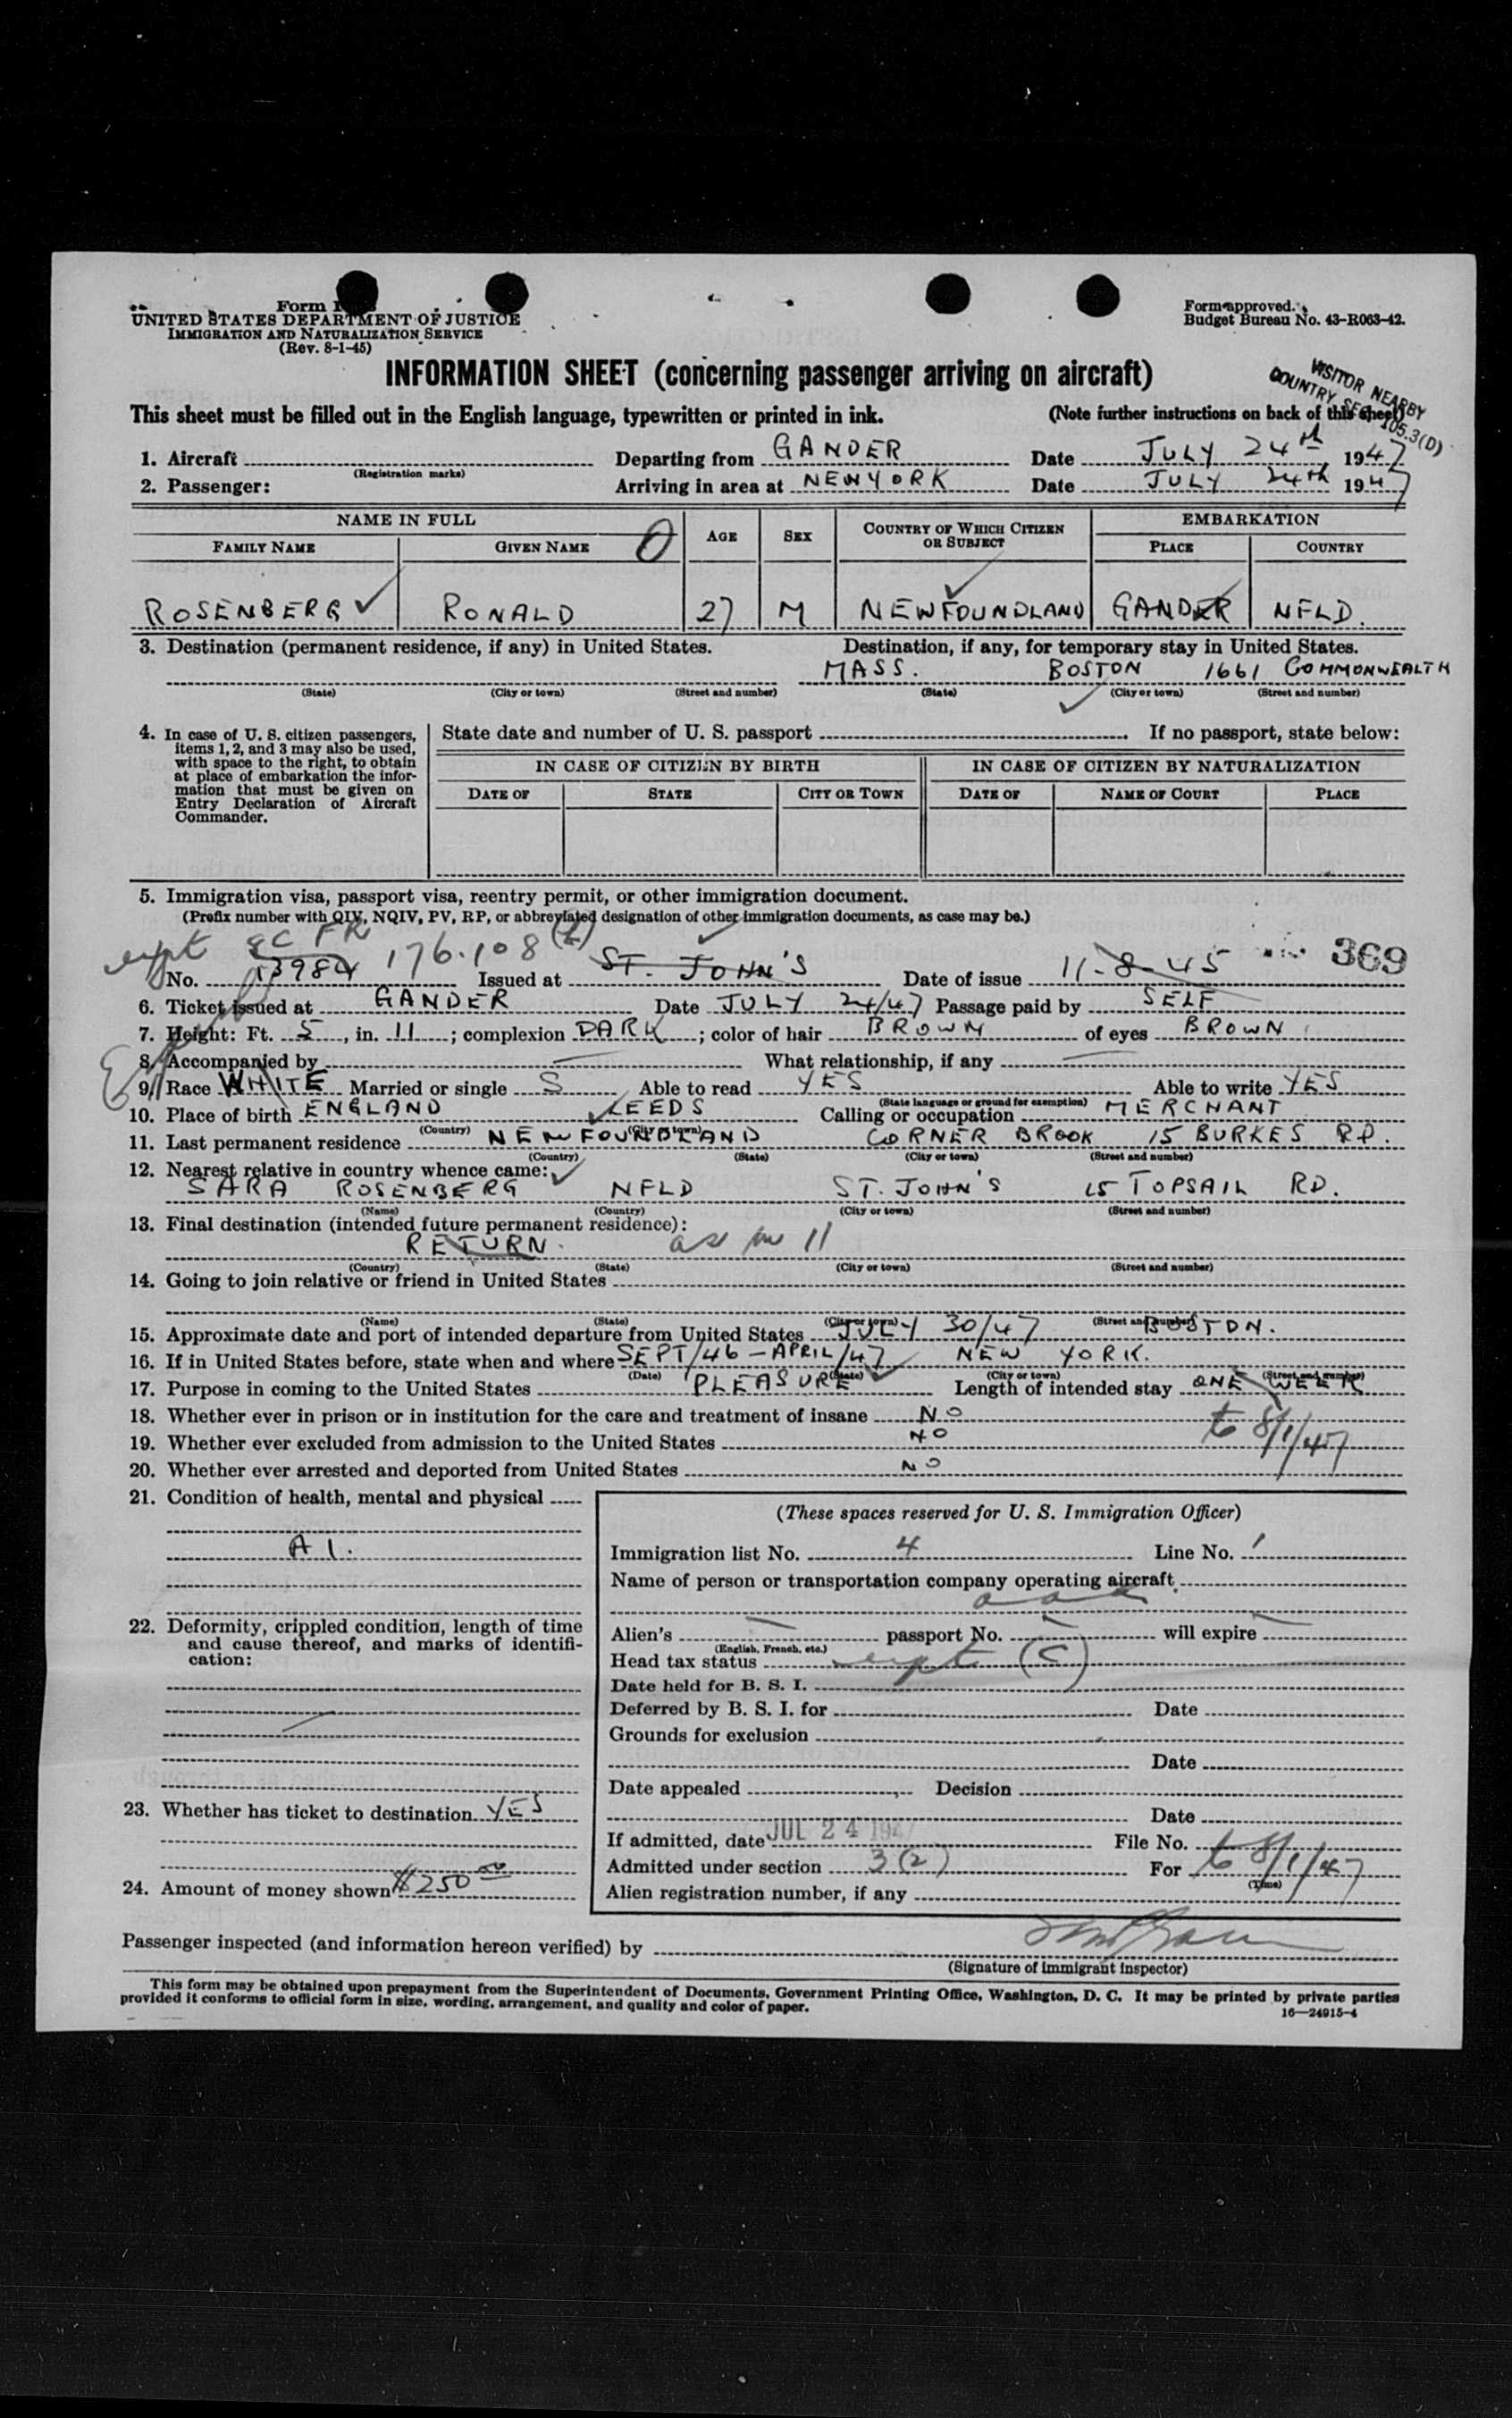 Form I
UNITED STATES DEPARTMENT OF JUSTICE
IMMIGRATION AND NATURALIZATION SERVICE
(Rev. 8-1-45)
Form approved.
Budget Bureau No. 43-R063-42.
INFORMATION SHEET (concerning passenger arriving on aircraft)
VISITOR NEARBY
COUNTRY SEC. 105.3(D)
This sheet must be filled out in the English language, typewritten or printed in ink. (Note further instructions on back of this sheet)
1. Aircraft Departing from GANDER Date JULY 24th 1947
(Registration marks)
2. Passenger: Arriving in area at NEW YORK Date JULY 24th 1947
NAME IN FULL AGE SEX COUNTRY OF WHICH CITIZEN OR SUBJECT EMBARKATION
FAMILY NAME GIVEN NAME PLACE COUNTRY
ROSENBERG RONALD 27 M NEWFOUNDLAND GANDER NFLD.
3. Destination (permanent residence, if any) in United States. Destination, if any, for temporary stay in United States.
MASS. BOSTON 1661 COMMONWEALTH
(State) (City or town) (Street and number) (State) (City or town) (Street and number)
4. In case of U. S. citizen passengers, items 1, 2, and 3 may also be used, with space to the right, to obtain at place of embarkation the information that must be given on Entry Declaration of Aircraft Commander.
State date and number of U. S. passport If no passport, state below:
IN CASE OF CITIZEN BY BIRTH IN CASE OF CITIZEN BY NATURALIZATION
DATE OF STATE CITY OR TOWN DATE OF NAME OF COURT PLACE
5. Immigration visa, passport visa, reentry permit, or other immigration document.
(Prefix number with QIV, NQIV, PV, RP, or abbreviated designation of other immigration documents, as case may be.)
176.108
369
No. 13984 Issued at ST. JOHN'S Date of issue 11-8-45
6. Ticket issued at GANDER Date JULY 24/47 Passage paid by SELF
7. Height: Ft. 5, in. 11; complexion DARK; color of hair BROWN of eyes BROWN
8. Accompanied by — What relationship, if any —
9. Race WHITE Married or single S Able to read YES Able to write YES
(State language or ground for exemption)
10. Place of birth ENGLAND LEEDS Calling or occupation MERCHANT
(Country) (City or town)
11. Last permanent residence NEWFOUNDLAND CORNER BROOK 15 BURKES RD.
(Country) (State) (City or town) (Street and number)
12. Nearest relative in country whence came:
SARA ROSENBERG NFLD ST. JOHN'S 15 TOPSAIL RD.
(Name) (Country) (City or town) (Street and number)
13. Final destination (intended future permanent residence):
RETURN. as in 11
(Country) (State) (City or town) (Street and number)
14. Going to join relative or friend in United States
(Name) (State) (City or town) (Street and number)
15. Approximate date and port of intended departure from United States JULY 30/47 BOSTON.
16. If in United States before, state when and where SEPT/46 - APRIL/47 NEW YORK.
(Date) (State) (City or town) (Street and number)
17. Purpose in coming to the United States PLEASURE Length of intended stay ONE WEEK
18. Whether ever in prison or in institution for the care and treatment of insane NO
to 8/1/47
19. Whether ever excluded from admission to the United States NO
20. Whether ever arrested and deported from United States NO
21. Condition of health, mental and physical
A1.
22. Deformity, crippled condition, length of time and cause thereof, and marks of identification:
23. Whether has ticket to destination YES
24. Amount of money shown $250.00
(These spaces reserved for U. S. Immigration Officer)
Immigration list No. 4 Line No. 1
Name of person or transportation company operating aircraft
Alien's — passport No. — will expire —
(English, French, etc.)
Head tax status expt (C)
Date held for B. S. I.
Deferred by B. S. I. for Date
Grounds for exclusion
Date
Date appealed Decision
Date
If admitted, date JUL 24 1947 File No.
Admitted under section 3(2) For to 8/1/47
(Time)
Alien registration number, if any
Passenger inspected (and information hereon verified) by
(Signature of immigrant inspector)
This form may be obtained upon prepayment from the Superintendent of Documents, Government Printing Office, Washington, D. C. It may be printed by private parties
provided it conforms to official form in size, wording, arrangement, and quality and color of paper.
16—24915-4